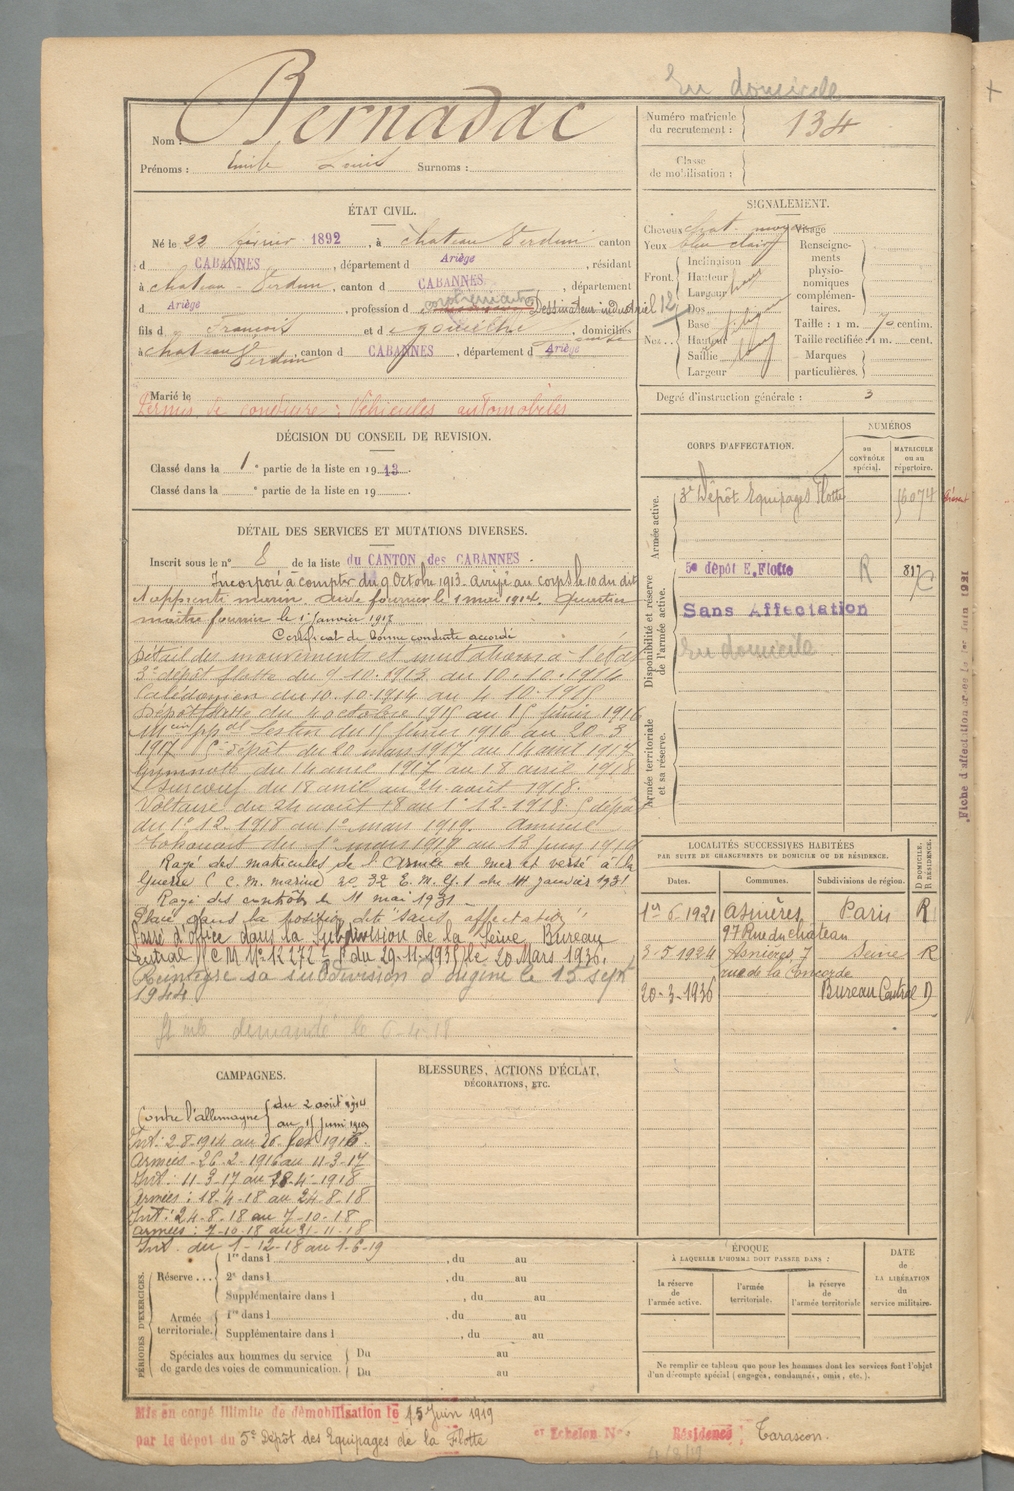 En domicile
Nom : Bernadac
Prénoms : Emile Louis Surnoms :
Numéro matricule du recrutement : 134
Classe de mobilisation :
ÉTAT CIVIL.
Né le 22 février 1892, à Chateau Verdun canton
d CABANNES, département d Ariège, résidant
à Chateau-Verdun, canton d CABANNES, département
d Ariège, profession d Dessinateur industriel
fils d François et d , domiciliés
à Chateau Verdun, canton d CABANNES, département d Ariège
Marié le
Permis de conduire : Véhicules automobiles
SIGNALEMENT.
Cheveux chat. moyen Visage
Yeux bleu clair
Front. Inclinaison
Hauteur
Largeur
Nez... Dos
Base
Hauteur
Saillie
Largeur
Renseignements physionomiques complémentaires.
Taille : 1 m. 70 centim.
Taille rectifiée : 1 m. cent.
Marques particulières.
Degré d'instruction générale : 3
DÉCISION DU CONSEIL DE REVISION.
Classé dans la 1e partie de la liste en 1913.
Classé dans la e partie de la liste en 19 .
CORPS D'AFFECTATION.
NUMÉROS
au CONTRÔLE spécial.
MATRICULE ou au répertoire.
Armée active.
3e Dépôt Equipages Flotte
Disponibilité et réserve de l'armée active.
5e dépôt E. Flotte R 817
Sans Affectation
En domicile
Armée territoriale et sa réserve.
Fiche d'affectation créée le 1er Juin 1921
DÉTAIL DES SERVICES ET MUTATIONS DIVERSES.
Inscrit sous le n° 8 de la liste du CANTON des CABANNES.
Incorporé à compter du 9 Octobre 1913. Arrivé au corps le 10 du dit
et apprenti marin. fourrier le 1 mai 1914. Quartier
maitre fourrier le 1 janvier 1917
Certificat de bonne conduite accordé
Détail des mouvements et mutations à l'état
3e dépôt flotte du 9.10.1913 au 10.10.1914
Calédonien du 10.10.1914 au 4.10.1915
Dépôt flotte du 4 octobre 1915 au 15 février 1916
du 15 février 1916 au 20-3
1917 5e dépôt du 20 mars 1917 au 14 avril 1917
Gymnote du 14 avril 1917 au 18 avril 1918
Surcouf du 18 avril au 24 août 1918.
Voltaire du 24 août 18 au 1er 12.1918 5 dépôt
du 1er 12.1918 au 1er mars 1919.
du 1er mars 1919 au 13 juin 1919
Rayé des matricules de l'armée de mer et versé à la
Guerre (C. M. marine 20 32 E. M. G. 1 du 14 janvier 1931
Rayé des contrôles le 11 mai 1931
Placé dans la position dite "sans affectation"
Passé d'office dans la Subdivision de la Seine Bureau
Central (C M N° 12272 du 29.11.1935) le 20 Mars 1936.
Réintègre sa subdivision d'origine le 15 sept
1944
demandé le 6-4-18
LOCALITÉS SUCCESSIVES HABITÉES
PAR SUITE DE CHANGEMENTS DE DOMICILE OU DE RÉSIDENCE.
Dates. Communes. Subdivisions de région. D DOMICILE. R RÉSIDENCE.
1er 6. 1921 Asnières Paris R
97 Rue du chateau
3-5-1924 Asnières, 7 Seine R
rue de la Concorde
20-3-1936 Bureau Central D
CAMPAGNES.
Contre l'allemagne du 2 août 1914
au 15 Juin 1919
Int : 2-8-1914 au 26 fev 1916.
Armées - 26-2-1916 au 11-3-17
Int : 11-3-17 au 18-4-1918
Armées : 18-4-18 au 24-8-18
Int : 24-8-18 au 7-10-18
Armées : 7-10-18 au 21-11-18
Int. du 1-12-18 au 1-6-19
BLESSURES, ACTIONS D'ÉCLAT,
DÉCORATIONS, ETC.
PÉRIODES D'EXERCICES.
Réserve... 1re dans l , du au
2e dans l , du au
Supplémentaire dans l , du au
Armée territoriale. 1re dans l , du au
Supplémentaire dans l , du au
Spéciales aux hommes du service de garde des voies de communication. Du au
Du au
ÉPOQUE
À LAQUELLE L'HOMME DOIT PASSER DANS :
la réserve de l'armée active.
l'armée territoriale.
la réserve de l'armée territoriale
DATE de LA LIBÉRATION du service militaire.
Ne remplir ce tableau que pour les hommes dont les services font l'objet
d'un décompte spécial (engagés, condamnés, omis, etc.).
Mis en congé illimité de démobilisation le 15 Juin 1919
par le dépôt du 5e Dépôt des Equipages de la Flotte et Echelon N° : Résidence : Tarascon.